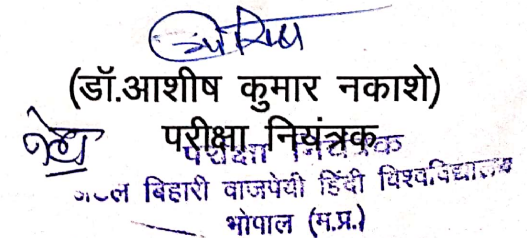 (डॉ.आशीष कुमार नकाशे)
परीक्षा नियंत्रक
परीक्षा नियंत्रक
अटल बिहारी वाजपेयी हिंदी विश्वविद्यालय
भोपाल (म.प्र.)